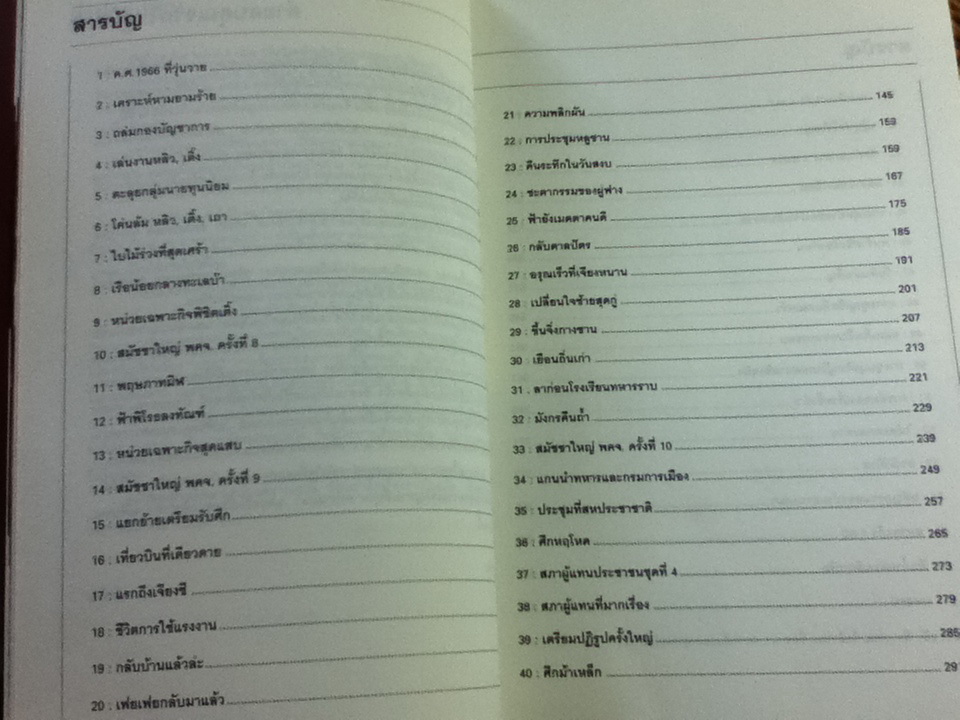 สารบัญ
1 : ค.ศ.1966 ที่วุ่นวาย
2 : เคราะห์หามยามร้าย
3 : ถล่มกองบัญชาการ
4 : เล่นงานหลิว, เติ้ง
5 : ตะลุยกลุ่มนายทุนนิยม
6 : โค่นล้ม หลิว, เติ้ง, เถา
7 : ใบไม้ร่วงที่สุดเศร้า
8 : เรือน้อยกลางทะเลบ้า
9 : หน่วยเฉพาะกิจพิชิตเติ้ง
10 : สมัชชาใหญ่ พคจ. ครั้งที่ 8
11 : พฤษภาทมิฬ
12 : ฟ้าพิโรธลงทัณฑ์
13 : หน่วยเฉพาะกิจสุดแสบ
14 : สมัชชาใหญ่ พคจ. ครั้งที่ 9
15 : แยกย้ายเตรียมรับศึก
16 : เที่ยวบินที่เดียวดาย
17 : แรกถึงเจียงซี
18 : ชีวิตการใช้แรงงาน
19 : กลับบ้านแล้วล่ะ
20 : เฟยเฟยกลับมาแล้ว
21 : ความพลิกผัน 145
22 : การประชุมหลูซาน 153
23 : คืนระทึกในวันสงบ 159
24 : ชะตากรรมของผู่ฟาง 167
25 : ฟ้ายังเมตตาคนดี 175
26 : กลับตาลปัตร 185
27 : อรุณเร็วที่เจียงหนาน 191
28 : เปลี่ยนใจซ้ายสุดกู่ 201
29 : ขึ้นจิ่งกางซาน 207
30 : เยือนถิ่นเก่า 213
31 . ลาก่อนโรงเรียนทหารราบ 221
32 : มังกรคืนถ้ำ 229
33 : สมัชชาใหญ่ พคจ. ครั้งที่ 10 239
34 : แกนนำทหารและกรมการเมือง 249
35 : ประชุมที่สหประชาชาติ 257
36 : ศึกหฤโหด 265
37 : สภาผู้แทนประชาชนชุดที่ 4 273
38 : สภาผู้แทนที่มากเรื่อง 279
39 : เตรียมปฏิรูปครั้งใหญ่ 285
40 : ศึกม้าเหล็ก 29